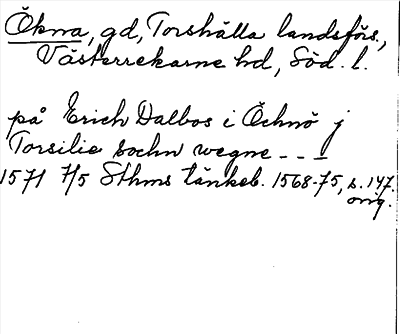 Ökna, gd, Torshälla landsförs.,
Västerrekarne hd, Söd. l.
på Erich Dalbos i Öchnö j
Torsilie sochn wegne - - -
1571 7/5 Sthms tänkeb. 1568-75, s. 147.
orig.